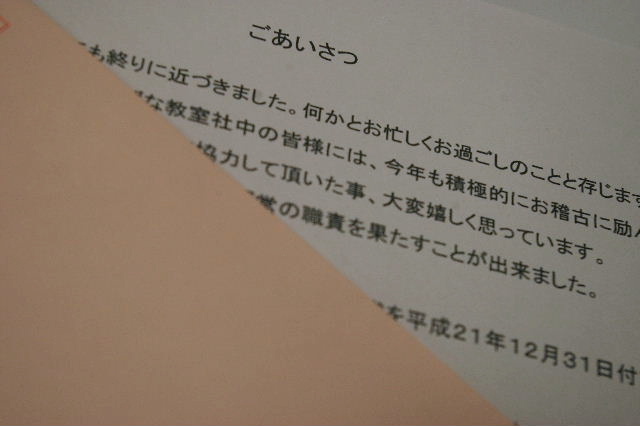 ごあいさつ
も終りに近づきました。何かとお忙しくお過ごしのことと存じます
な教室社中の皆様には、今年も積極的にお稽古に励ん
協力して頂いた事、大変嬉しく思っています。
営の職責を果たすことが出来ました。
を平成21年12月31日付